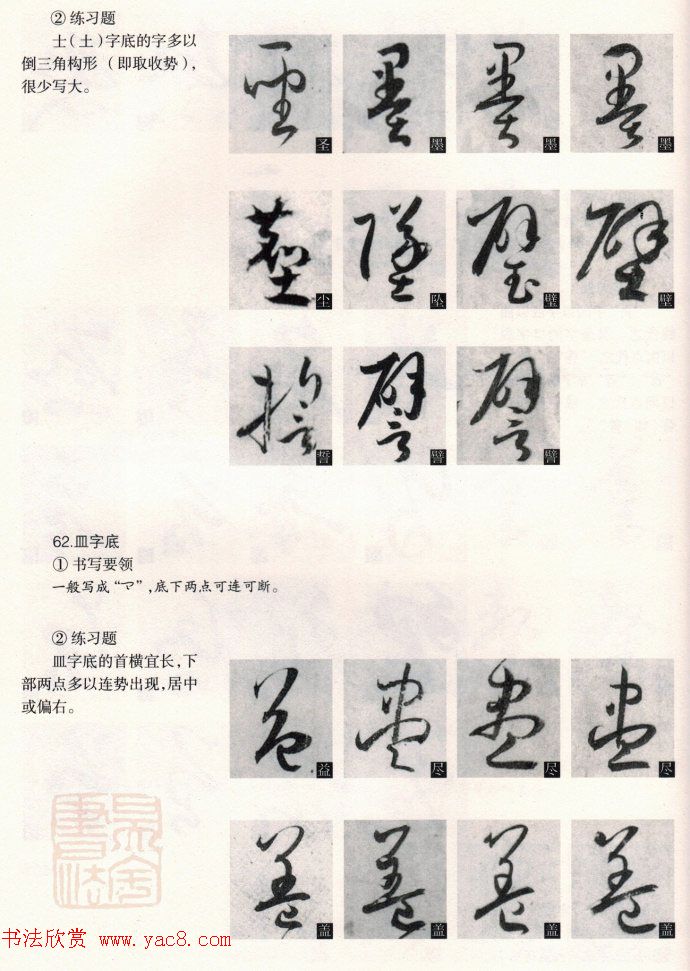 ② 练习题
士(土)字底的字多以
倒三角构形 (即取收势),
很少写大。
圣 墨 墨 墨
尘 坠 璧 壁
誓 譬 譬
62.皿字底
① 书写要领
一般写成“”,底下两点可连可断。
② 练习题
皿字底的首横宜长,下
部两点多以连势出现,居中
或偏右。
益 尽 尽 尽
盖 盖 盖 盖
书法欣赏 www.yac8.com